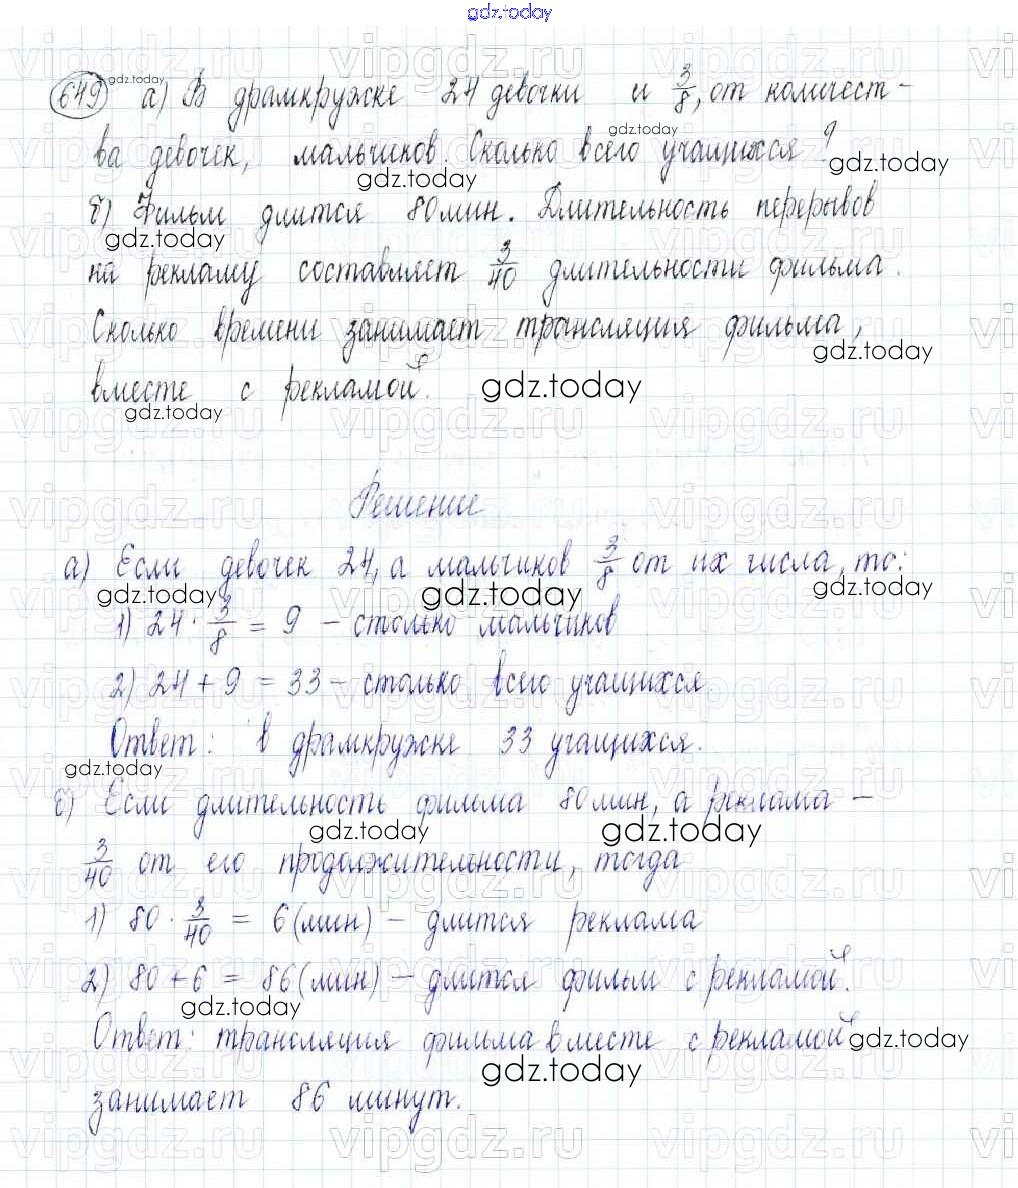 gdz.today
649 а) В драмкружке 24 девочки и 3/8, от количест-
ва девочек, мальчиков. Сколько всего учащихся?
б) Фильм длится 80 мин. Длительность перерывов
на рекламу составляет 3/40 длительности фильма.
Сколько времени занимает трансляция фильма,
вместе с рекламой.
Решение
а) Если девочек 24, а мальчиков 3/8 от их числа, то:
1) 24 · 3/8 = 9 – столько мальчиков
2) 24 + 9 = 33 – столько всего учащихся.
Ответ: в драмкружке 33 учащихся.
б) Если длительность фильма 80 мин, а реклама –
3/40 от его продолжительности, тогда
1) 80 · 3/40 = 6 (мин) – длится реклама
2) 80 + 6 = 86 (мин) – длится фильм с рекламой.
Ответ: трансляция фильма вместе с рекламой
занимает 86 минут.